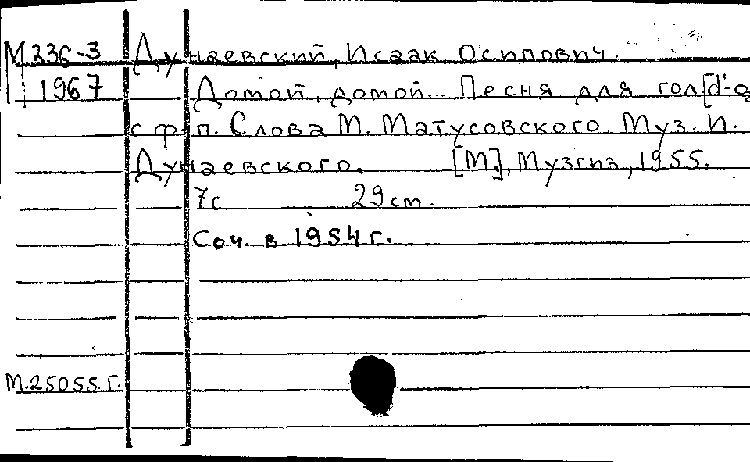 М 336-3 Дунаевский, Исаак Осипович.
1967 Домой, домой... Песня для гол[d'-g
с ф-п. Слова М. Матусовского. Муз. И.
Дунаевского. [М], Музгиз, 1955.
7с 29 см.
Соч. в 1954 г.
М.25055.Г.